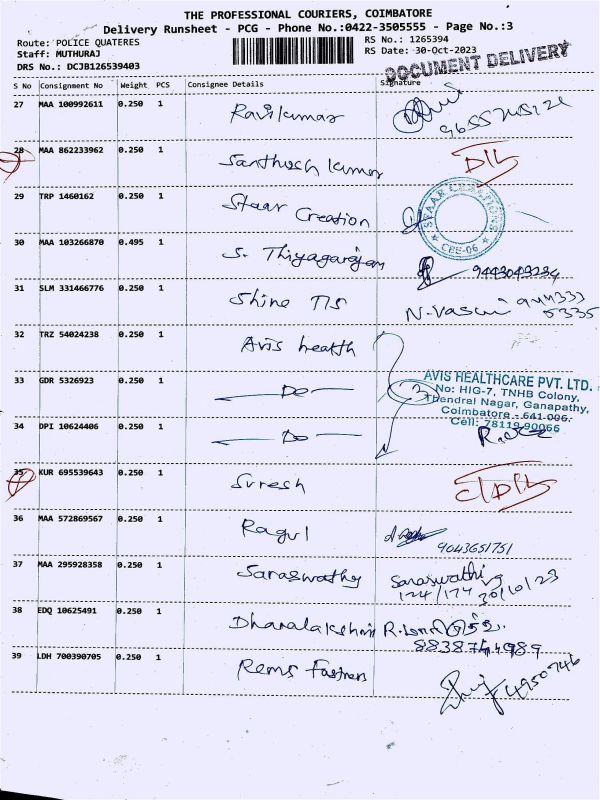 THE PROFESSIONAL COURIERS, COIMBATORE
Delivery Runsheet - PCG - Phone No.:0422-3505555 - Page No.:3
Route: POLICE QUATERES
RS No.: 1265394
Staff: MUTHURAJ
RS Date: 30-Oct-2023
DRS No.: DCJB126539403
DOCUMENT DELIVERY
S No Consignment No Weight PCS Consignee Details Signature
27 MAA 100992611 0.250 1 Ravikumar
28 MAA 862233962 0.250 1 Santhosh kumar
29 TRP 1460162 0.250 1 Staar Creation
STAAR CREATIONS
CBE-06
30 MAA 103266870 0.495 1 S. Thiyagarajan
31 SLM 331466776 0.250 1 Shine TIS N. Vasuki
32 TRZ 54024238 0.250 1 Avis health
33 GDR 5326923 0.250 1 Do
AVIS HEALTHCARE PVT. LTD.
No: HIG-7, TNHB Colony,
Thendral Nagar, Ganapathy,
Coimbatore - 641 006.
Cell: 78119 90066
34 DPI 10624406 0.250 1 Do
35 KUR 695539643 0.250 1 Suresh
36 MAA 572869567 0.250 1 Ragul
9043651751
37 MAA 295928358 0.250 1 Saraswathy Saraswathi
124/174 30/10/23
38 EDQ 10625491 0.250 1 Dhanalakshmi
39 LDH 700390705 0.250 1 Rems Fastners
4950746